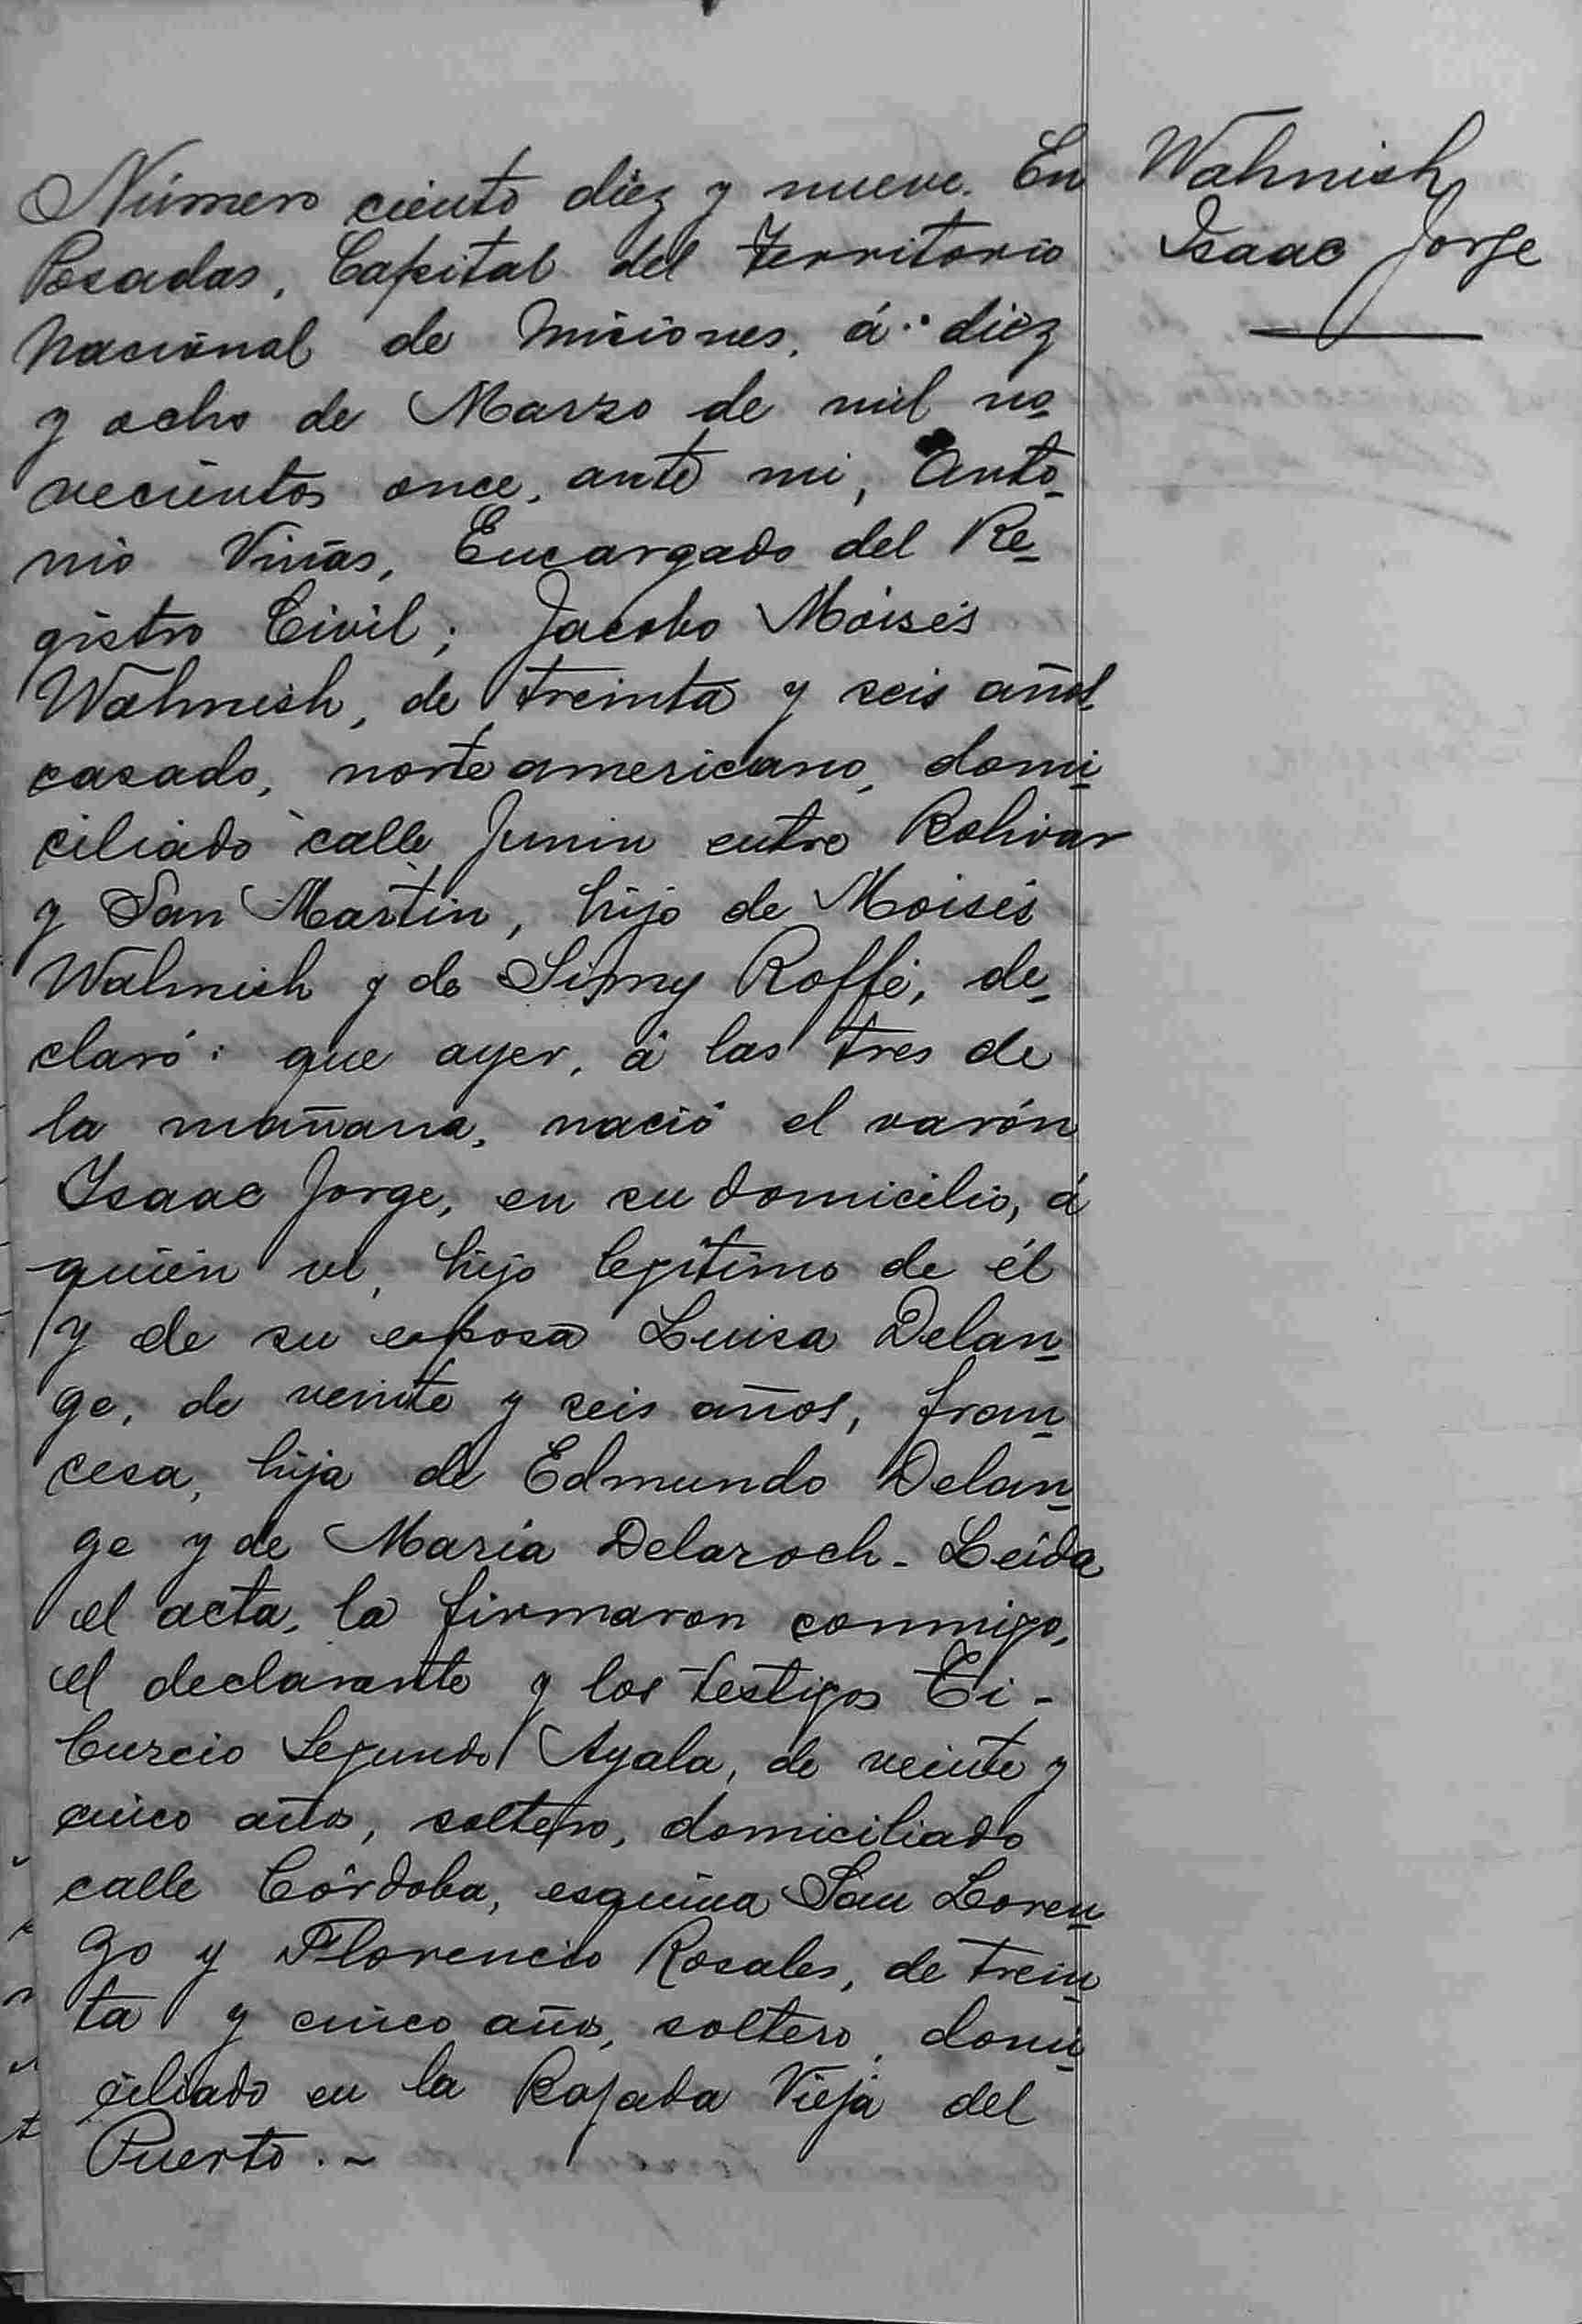 Wahnish
Isaac Jorge
Número ciento diez y nueve. En
Posadas, Capital del Territorio
Nacional de Misiones, á diez
y ocho de Marzo de mil no-
vecientos once, ante mi, Anto-
nio Viñas, Encargado del Re-
gistro Civil; Jacobo Moisés
Wahnish, de treinta y seis años,
casado, norte americano, domi-
ciliado calle Junin entre Bolivar
y San Martin, hijo de Moisés
Wahnish y de Simy Roffé, de-
claró: que ayer, á las tres de
la mañana, nació el varón
Isaac Jorge, en su domicilio, á
quién vi, hijo legítimo de él
y de su esposa Luisa Delan-
ge, de veinte y seis años, fran-
cesa, hija de Edmundo Delan-
ge y de María Delaroch - Leida
el acta, la firmaron conmigo,
el declarante y los testigos Ti-
burcio Segundo Ayala, de veinte y
cinco años, soltero, domiciliado
calle Córdoba, esquina San Loren-
zo y Florencio Rosales, de trein-
ta y cinco años, soltero, domi-
ciliado en la Bajada Vieja del
Puerto. -